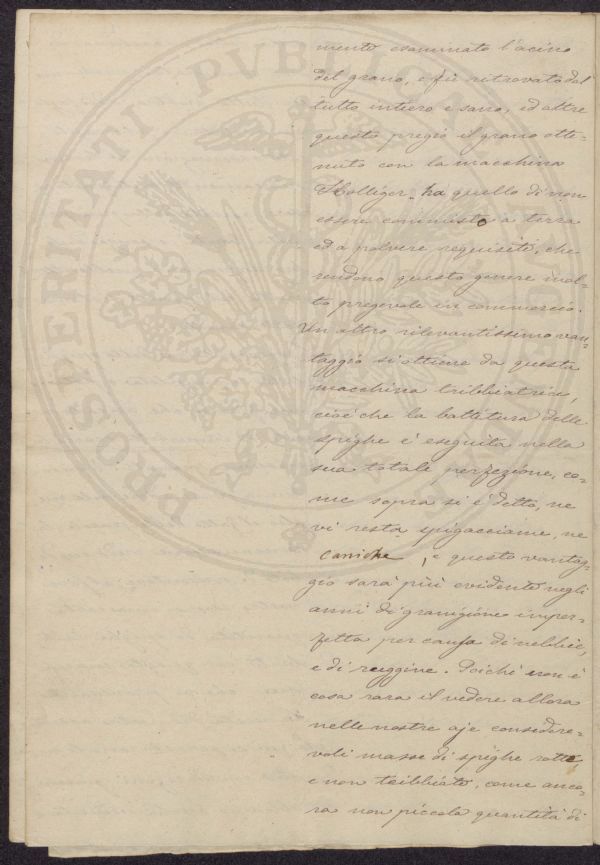 PROSPERITATI PVBLICAE
mento esaminato l'acino
del grano, e fù ritrovato del
tutto intiero e sano, ed oltre
questo pregio il grano otte-
nuto con la macchina
Holliger ha quello di non
essere commisto a terra
ed a polvere requisiti, che
rendono questo genere mol-
to pregevole in commercio.
Un altro rilevantissimo van-
taggio si ottiene da questa
macchina tribbiatrice,
cioè che la battitura delle
spighe è eseguita nella
sua totale perfezione, co-
me sopra si è detto, ne
vi resta spigacciame, ne
caniche, e questo vantag-
gio sarà più evidente negli
anni di granigione imper-
fetta per causa di nebbie,
e di ruggine. Poichè non è
cosa rara il vedere allora
nelle nostre aje considere-
voli masse di spighe rotte
e non tribbiate, come anco-
ra non piccola quantità di